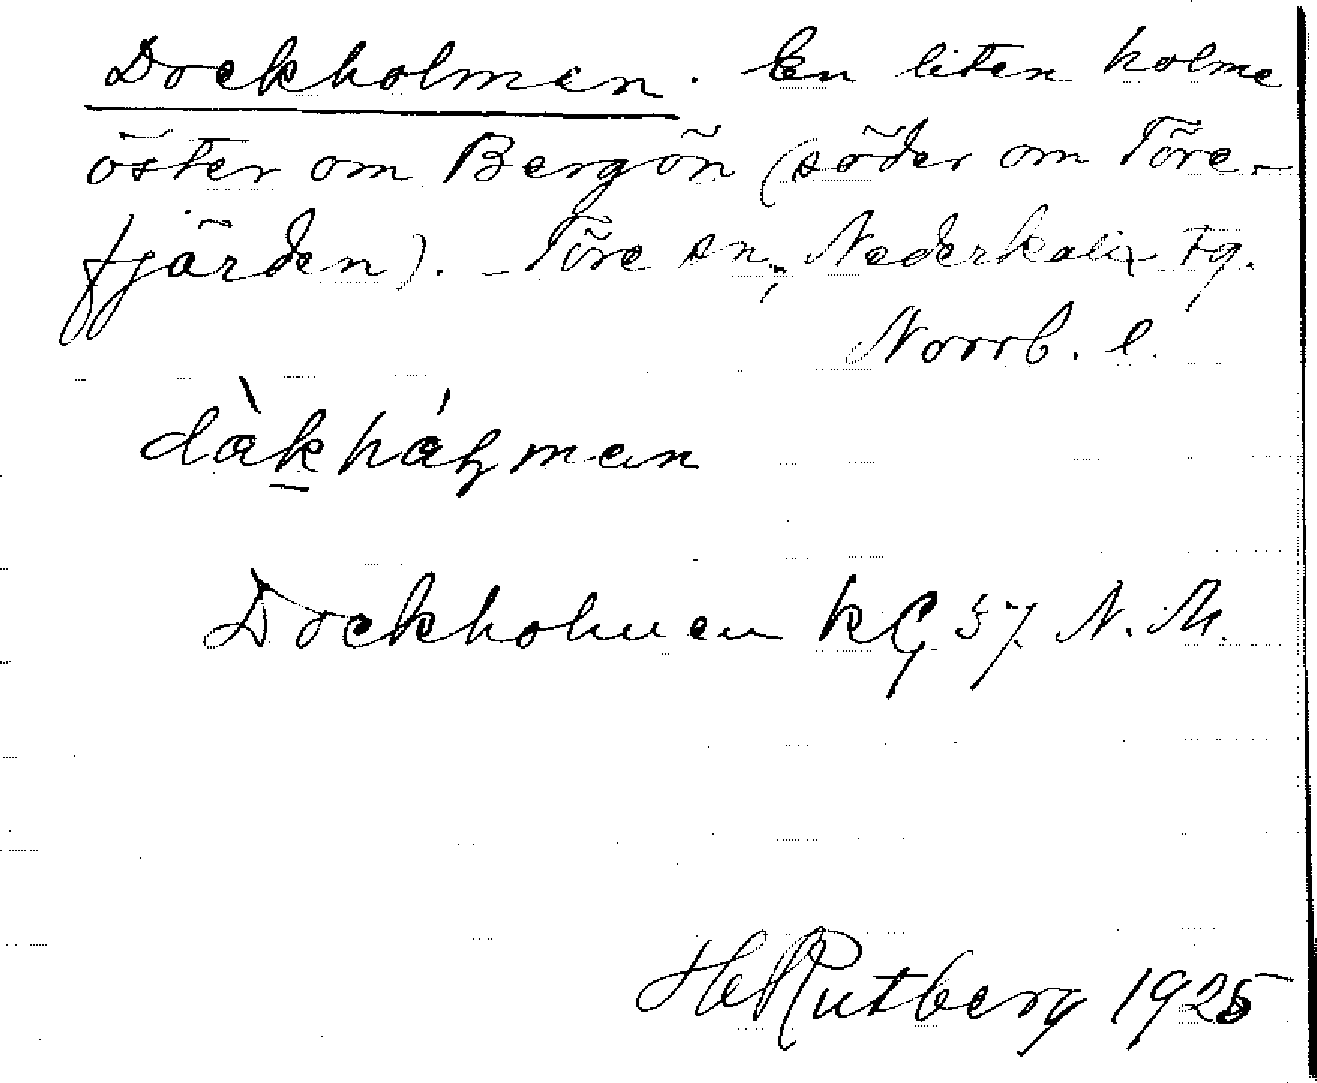 Dockholmen. En liten holme
öster om Bergön (söder om Töre-
fjärden). - Töre sn, Nederkalix tg.
Norrb. l.
dàkháɭmen
Dockholmen kG 57 N. M.
H Rutberg 1925